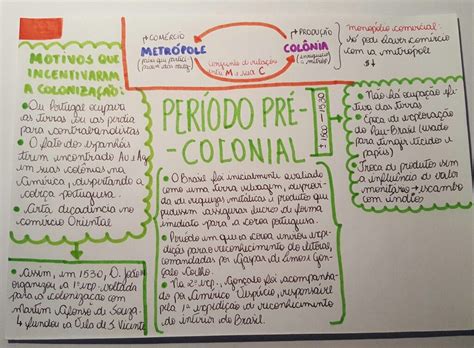 MOTIVOS QUE
INCENTIVARAM
A COLONIZAÇÃO:
• Ou Portugal ocupava
as terras ou as perdia
para contrabandistas
• O fato dos espanhóis
terem encontrado Au e Ag
em suas colônias na
América, despertando a
cobiça portuguesa.
• Certa decadência no
comércio Oriental
• Assim, em 1530, D. João
organizou a 1ª exp. voltada
para a colonização com
Martim Afonso de Souza.
↳ fundou a Vila de S. Vicente
→ COMÉRCIO
METRÓPOLE
conjunto de relações
entre M e sua C
→ PRODUÇÃO
COLÔNIA
monopólio comercial:
só pode fazer comércio
com a metrópole
PERÍODO PRÉ-
-COLONIAL
± 1500 - 1530
• O Brasil foi inicialmente avaliado
como uma terra selvagem, desprovi-
da de riquezas metálicas e produtos que
pudessem assegurar lucros de forma
imediata para a coroa portuguesa.
• Período em que a coroa enviou expe-
dições para reconhecimento do litoral,
comandadas por Gaspar de Lemos e Gonçalo
Coelho.
• Na 2ª exp., Gonçalo foi acompanha-
do por Américo Vespúcio, responsável
pela 1ª expedição de reconhecimento
do interior do Brasil.
• Não há ocupação efe-
tiva das terras
• Época de exploração
do Pau-Brasil (usado
para tingir tecidos e
papéis)
• Troca de produtos sem
a influência do valor
monetário → escambo
com índios